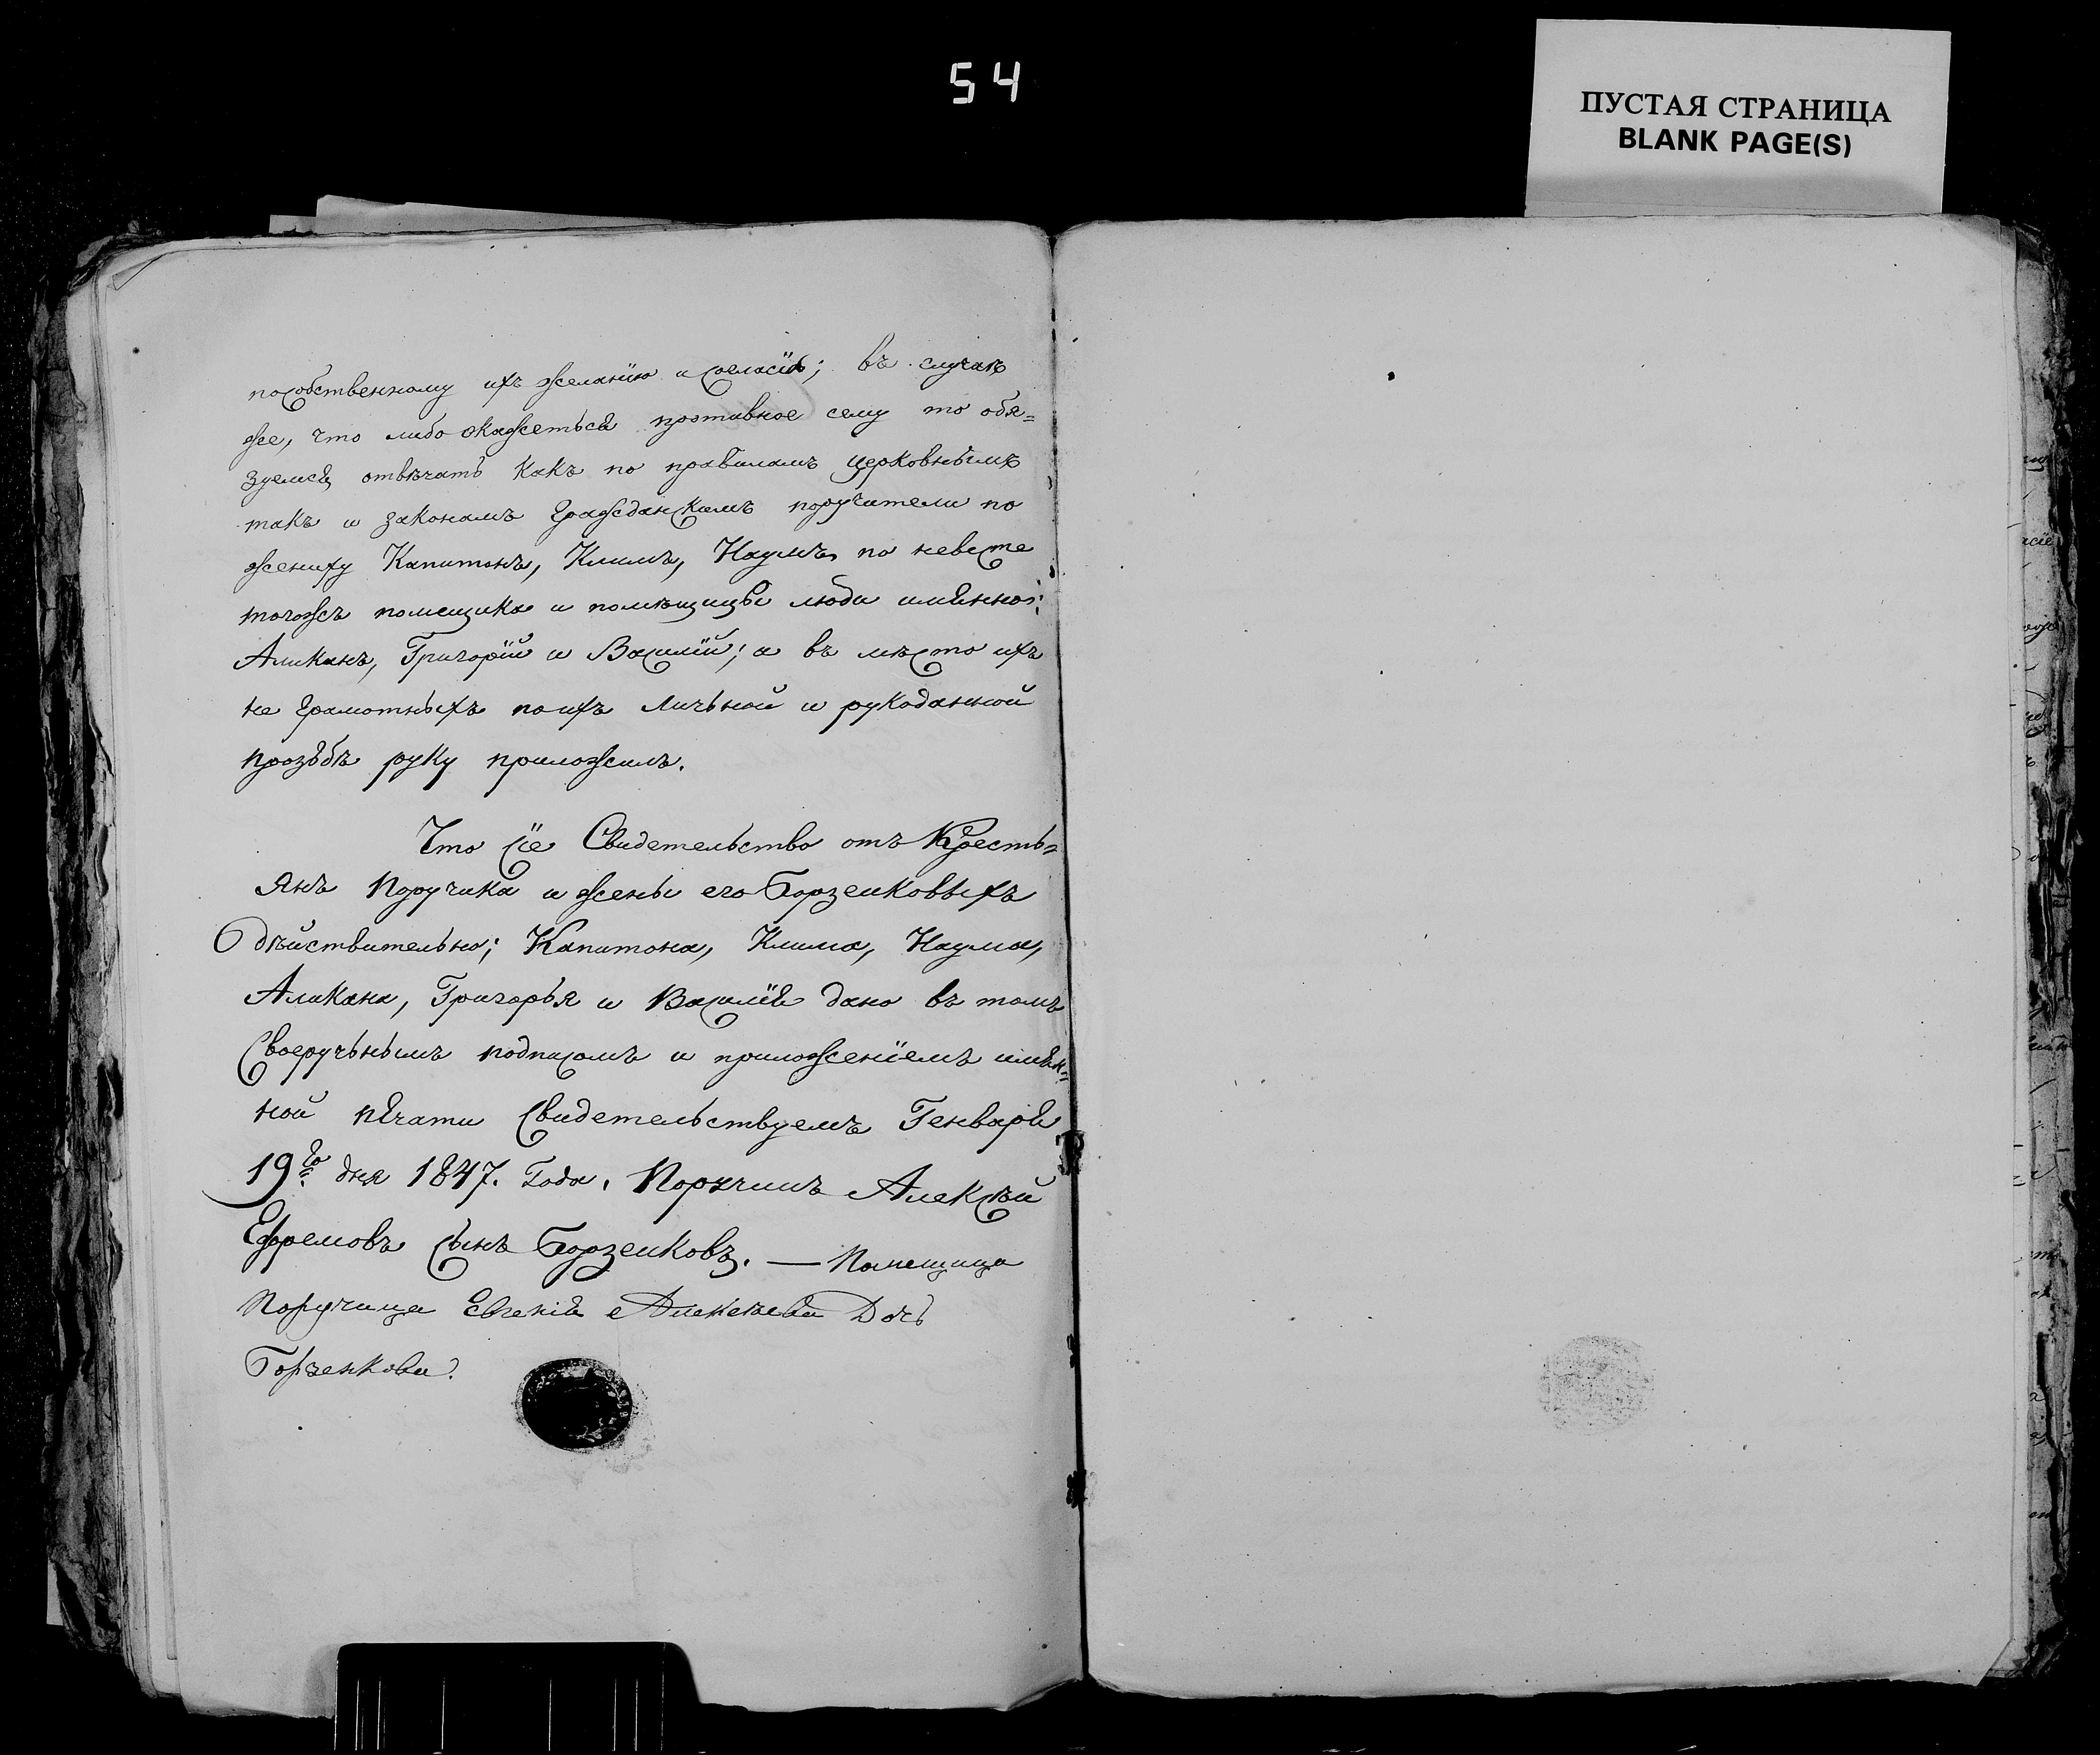 54
ПУСТАЯ СТРАНИЦА
BLANK PAGE(S)
пособственному ихъ желанію и согласію; въ случаѣ
же, что либо окажеться протывное сему то обя=
зуемся отвѣчать какъ по правиламъ церковнымъ
такъ и законамъ гражданскимъ поручители по
жениху Капитонъ, Климъ, Наумъ, по невесте
тогожъ помещика и помѣщицы люди имянно:
Аликанъ, Григорій и Василій; а въ мѣсто ихъ
не грамотныхъ по ихъ личьной и рукоданной
прозьбѣ руку приложилъ.
Что сіе Свидетельство отъ Кресть=
янъ Поручика и жены его Борзенковыхъ
дѣйствительно; Капитона, Клима, Наума,
Аликана, Григорья и Василія дано въ томъ
своеручьнымъ подписомъ и приложеніемъ имян=
ной печати свидетельствуемъ Генваря
19го дня 1847. Года. Поручикъ Алексѣй
Ефремовъ сынъ Борзенковъ. — Помещица
Поручица Евгенія Алексѣева Дочь
Борзенкова.